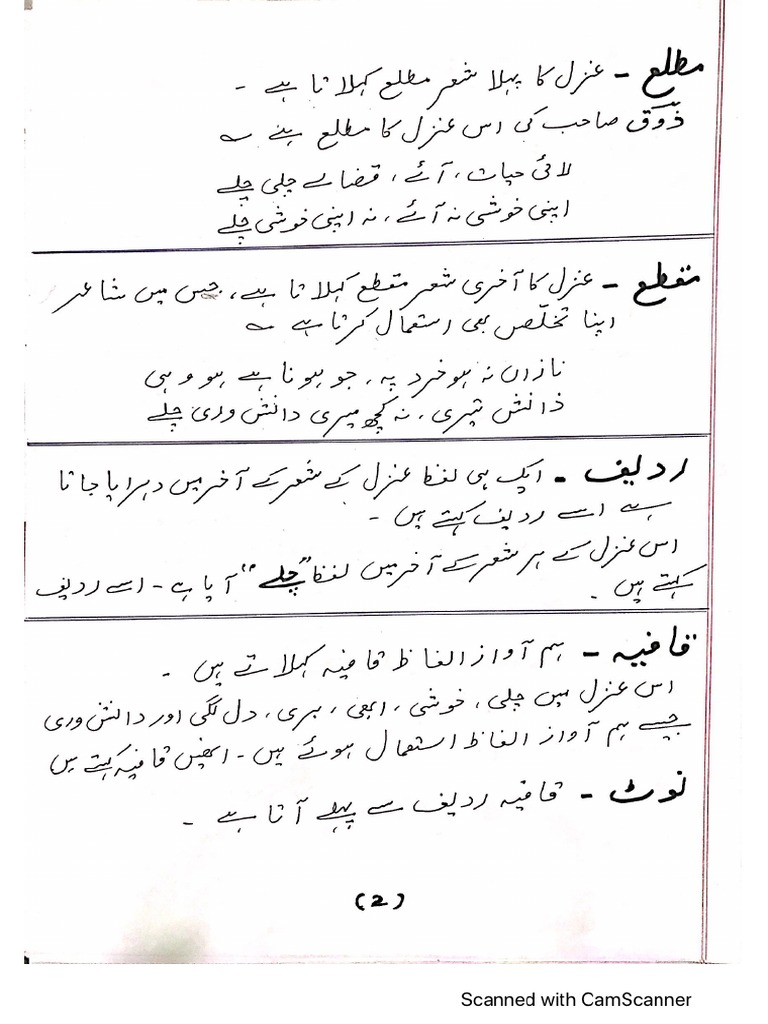 مطلع - غزل کا پہلا شعر مطلع کہلاتا ہے -
ذوق صاحب کی اس غزل کا مطلع ہے ؎
لائی حیات، آئے، قضا لے چلی چلے
اپنی خوشی نہ آئے، نہ اپنی خوشی چلے
مقطع - غزل کا آخری شعر مقطع کہلاتا ہے، جس میں شاعر
اپنا تخلّص بھی استعمال کرتا ہے ؎
نازاں نہ ہو خرد پہ، جو ہونا ہے ہو وہی
دانش تیری، نہ کچھ میری دانش وری چلے
ردیف - ایک ہی لفظ غزل کے شعر کے آخر میں دہرایا جاتا
ہے اسے ردیف کہتے ہیں -
اس غزل کے ہر شعر کے آخر میں لفظ "چلے" آیا ہے - اسے ردیف
کہتے ہیں -
قافیہ - ہم آواز الفاظ قافیہ کہلاتے ہیں -
اس غزل میں چلی، خوشی، ابھی، بری، دل لگی اور دانش وری
جیسے ہم آواز الفاظ استعمال ہوئے ہیں - انھیں قافیہ کہتے ہیں
نوٹ - قافیہ ردیف سے پہلے آتا ہے -
(2)
Scanned with CamScanner